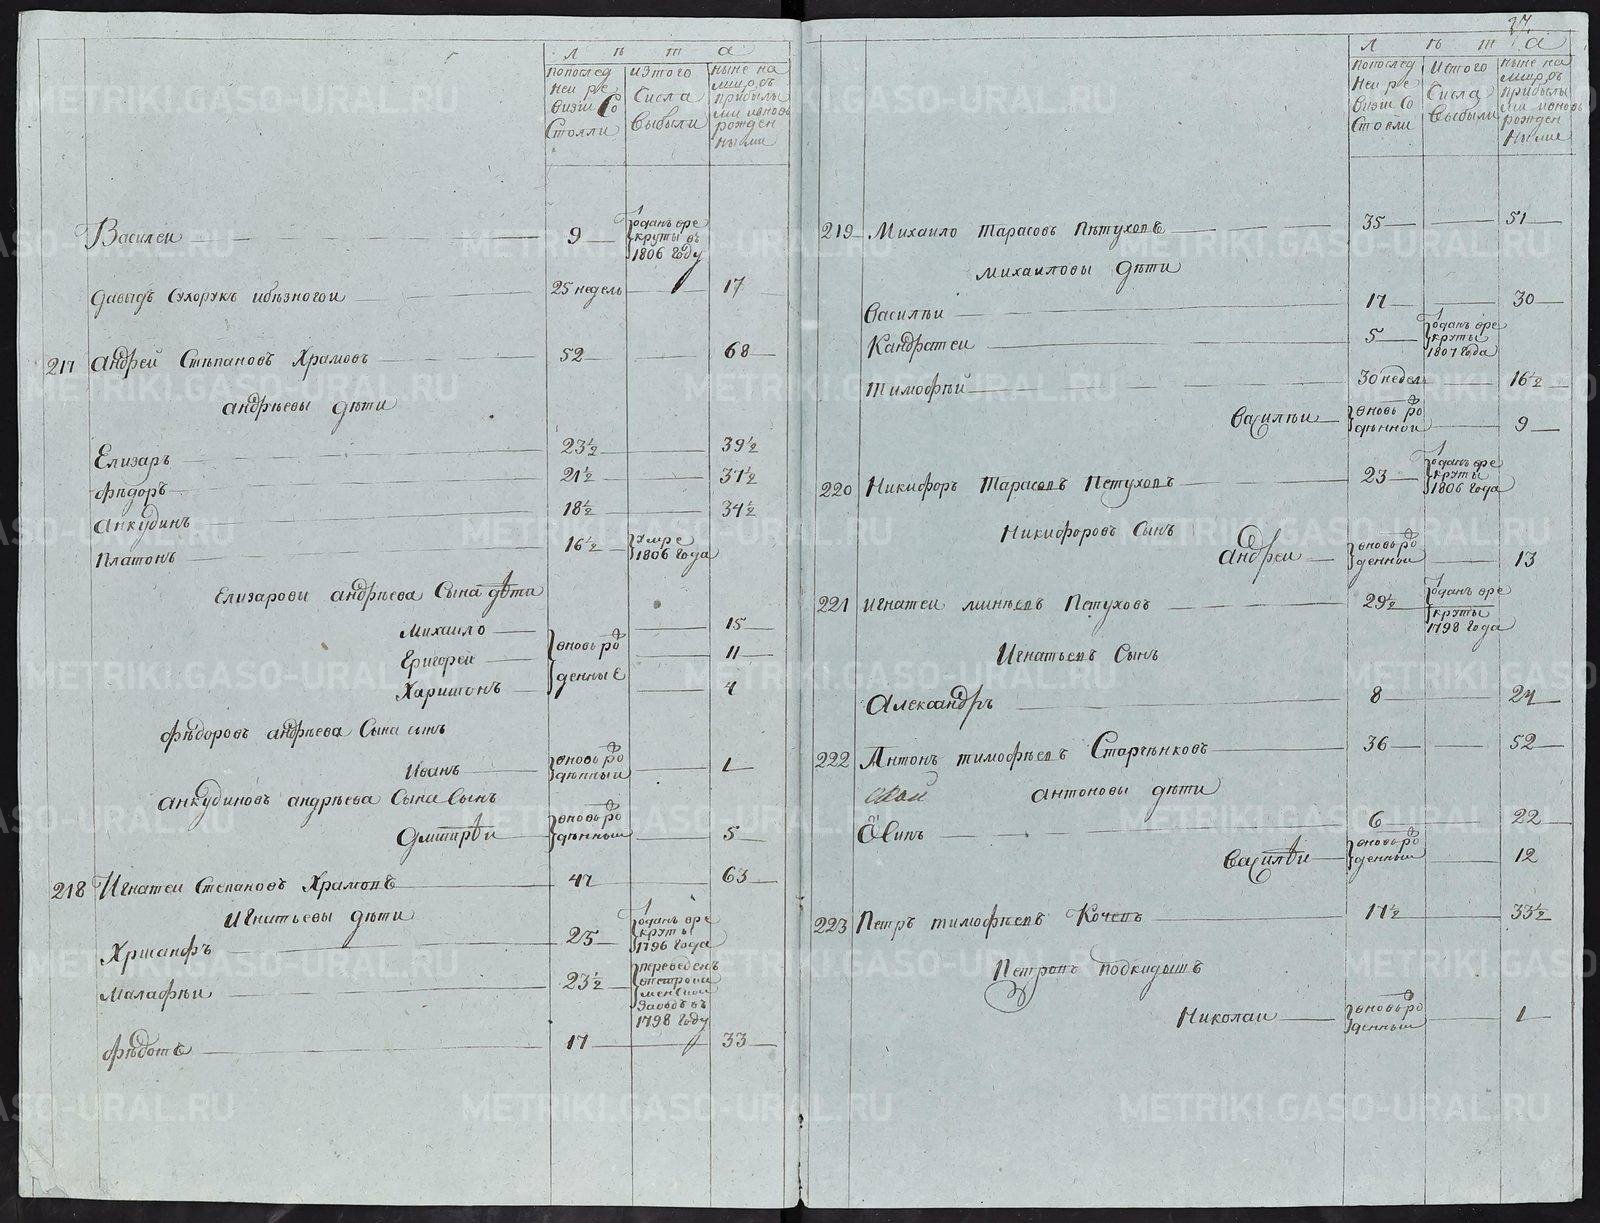 л ѣ т а
попослед
неи ре
визи Со
Стояли
изтого
Сисла
Выбыли
ныне на
лицо съ
прибылы
ми ивновь
рожден
ными
Василеи 9 Одан вре
круты въ
1806 году
давыдъ Сухорукъ 25 недель 17
217 андрей Стѣпановъ Храмовъ 52 68
андрѣевы дѣти
Елизаръ 23½ 39½
Фѣдоръ 21½ 37½
анкудинъ 18½ 34½
платонъ 16½ умре
1806 года
Елизарови андрѣева Сына дѣти
Михаило 15
Григореи вновь ро
денные 11
Харитонъ 4
Фѣдоровъ андрѣева Сына сынъ
Иванъ вновь ро
дѣнныи 1
анкудиновъ андрѣева Сына Сынъ
Дмитрѣи вновь ро
дѣнныи 5
218 Игнатеи Степановъ Храмовъ 47 63
Игнатьевы дѣти
Хрисанфъ 25 Одан вре
круты
1796 года
Малафѣи 23½ переведенъ
заводъ въ
1798 году
Фѣдотъ 17 33
37
л ѣ т а
попослед
неи ре
визи Со
Стояли
изтого
Сисла
Выбыли
ныне на
лицо съ
прибылы
ми ивновь
рожден
ными
219 Михаило Тарасовъ Пѣтуховъ 35 51
михаиловы дѣти
Василѣи 17 30
Кандратеи 5 Одан вре
круты
1807 года
Тимофѣй 30 недел 16½
Василѣи вновь ро
дѣнной 9
220 Никифоръ Тарасовъ Петуховъ 23 Одан вре
круты
1806 года
Никифоровъ Сынъ
Андреи вновь ро
денной 13
221 Игнатеи минѣевъ Петуховъ 29½ Одан вре
круты
1798 года
Игнатьевъ Сынъ
Александръ 8 24
222 Антонъ тимофѣевъ Старченковъ 36 52
антоновы дѣти
6 22
Василѣи вновь ро
денныи 12
223 Петръ тимофѣевъ Кочевъ 17½ 33½
Петровъ подкидышъ
Николаи вновь ро
денныи 1
METRIKI.GASO-URAL.RU